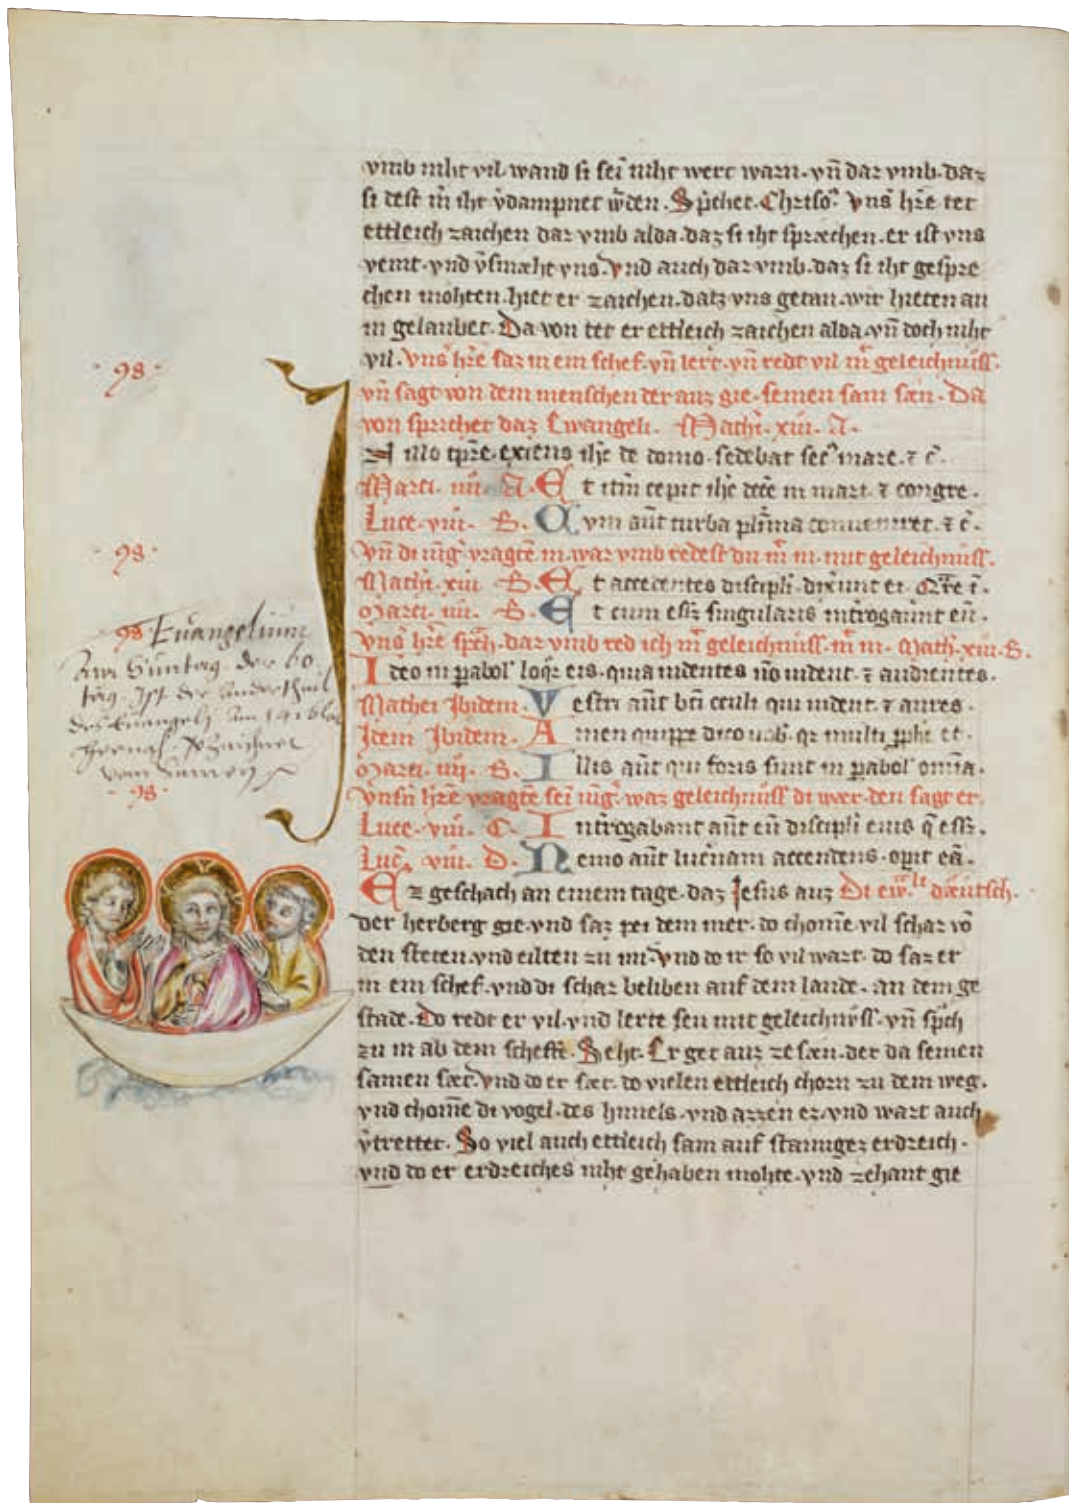 vmb niht vil. wand si sei niht wert warn. vn̄ dar vmb. daz
si dest m̄ iht v̄dampnet w̄den. Sp̄chet. Chrisoᵐ. vns h̄re tet
ettleich zaichen dar vmb alda. daz si iht spræchen. er ist vns
veint. vnd v̄smæht vns. vnd auch dar vmb. daz si iht gespre
chen mohten. hiet er zaichen. datz vns getan. wir hieten an
in gelaubet. Da von tet er ettleich zaichen alda. vn̄ doch niht
vil. vns h̄re saz in ein schef. vn̄ lert. vn̄ redt vil m̄ geleichnüss.
vn̄ sagt von dem menschen der auz gie. seinen sam sæn. Da
von sprichet daz Ewangeli. Mathi. xiii. A.
In illo tp̄re. exiens ih̄c de domo. sedebat sec̄ mare. ⁊ c̄.
Marci. iiii. A. Et itm̄ cepit ih̄c doc̄e in mari. ⁊ congre.
Luce. viii. B. Cvm aūt turba pl̄ima conueniret. ⁊ c̄.
vn̄ di iūg vragtē in. war vmb redest du m̄ in. mit geleichnüss.
Mathi. xiii. B. Et accedentes discipli. dix̄unt ei. Q̄re ī.
Marci. iiii. B. Et cum ess̄ singularis int̄rogaūnt eū.
vns h̄re sp̄ch. dar vmb red ich m̄ geleichnüss. m̄ in. Math. xiii. B.
Ideo in p̄abol' loq̄r eis. quia uidentes nō uident. ⁊ audientes.
Mathei Ibidem. Vestri aūt bt̄i oculi qui uident. ⁊ aures.
Idem Ibidem. Amen quippe dico uob̄. q̄ multi p̄phe et.
Marci. iiij. B. Illis aūt qui foris sunt in p̄abol' omīa.
vnsn̄ h̄re vragtē sei iūg. waz geleichnüss di wær. den sagt er.
Luce. viii. C. Int̄rogabant aūt eū discipli eius q̄ ess̄.
Luc̄. viii. D. Nemo aūt luc̄nam accendens. op̄it eā.
Ez geschach an einem tage. daz Jesus auz Di ew̄.ᵗ dæutsch.
der herberg gie. vnd saz pei dem mer. do chom̄e. vil schar vō
den steten. vnd eilten zu im. vnd do ir so vil wart. do saz er
in ein schef. vnd di schar beliben auf dem lande. an dem ge
stade. Do redt er vil. vnd lerte seu mit geleichnüss. vn̄ sp̄ch
zu in ab dem scheffe. Seht. Er get auz ze sæn. der da seinen
samen sæt. vnd do er sæt. do vielen ettleich chorn zu dem weg.
vnd chom̄e di vogel. des himels. vnd azzen ez. vnd wart auch
v̄trettet. So viel auch ettleich sam auf stainigez erdreich.
vnd do er erdreiches niht gehaben mohte. vnd zehant gie
98
98
98 Euangelium
Am Suntag der 60
tag. Ist der ander theil
des Euangelij
vom Samen
98